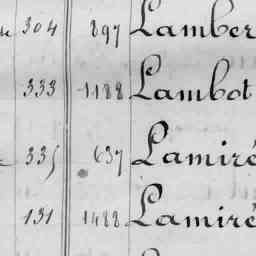 304 897 Lamber
333 1188 Lambot
335 637 Lamiré
131 1488 Lamiré